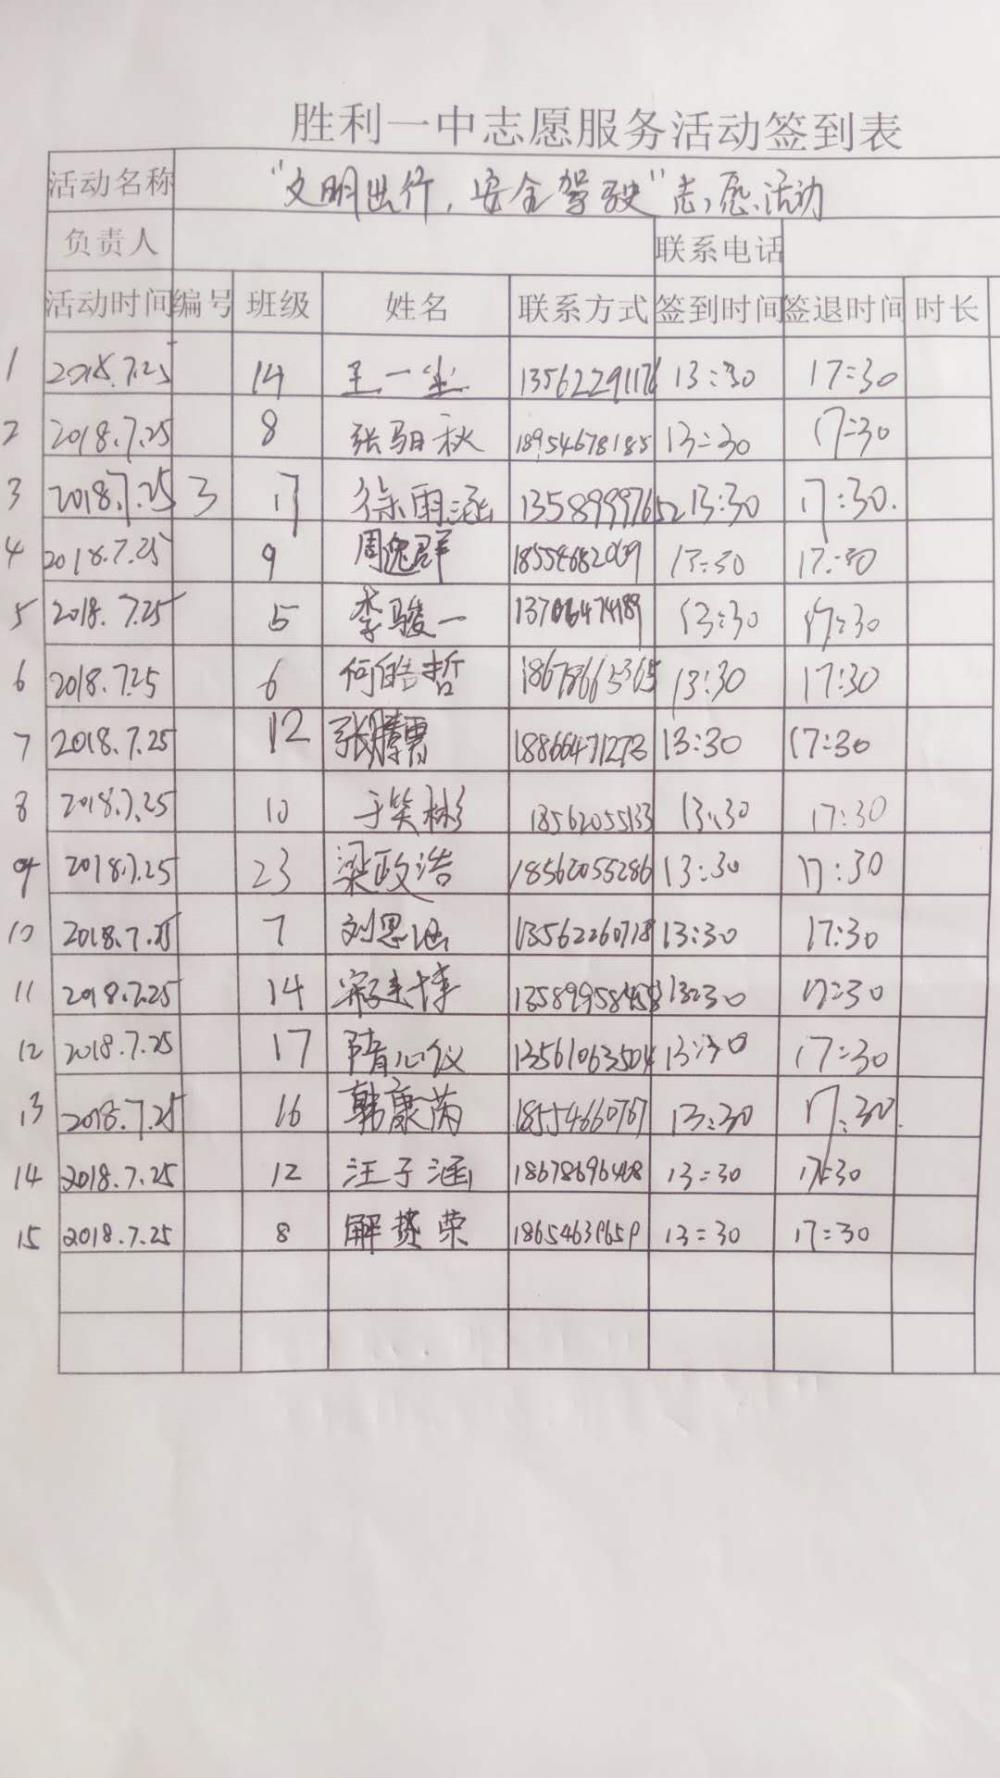 胜利一中志愿服务活动签到表
活动名称 "文明出行，安全驾驶"志愿活动
负责人 联系电话
活动时间 编号 班级 姓名 联系方式 签到时间 签退时间 时长
1 2018.7.25 14 王一尘 13562291176 13:30 17:30
2 2018.7.25 8 张珀秋 18954678185 13:30 17:30
3 2018.7.25 3 17 徐雨涵 13589997652 13:30 17:30.
4 2018.7.25 9 周逸群 13:30 17:30
5 2018.7.25 5 李骏一 13706474189 13:30 17:30
6 2018.7.25 6 何皓哲 18678665365 13:30 17:30
7 2018.7.25 12 张腾霄 18866471273 13:30 17:30
8 2018.7.25 10 于笑彬 18562055133 13:30 17:30
9 2018.7.25 23 梁政浩 18562055286 13:30 17:30
10 2018.7.25 7 刘思涵 13562260718 13:30 17:30
11 2018.7.25 14 13589958458 13:30 17:30
12 2018.7.25 17 隋心仪 13561063504 13:30 17:30
13 2018.7.25 16 韩康芮 18554660767 13:30 17:30.
14 2018.7.25 12 汪子涵 18678696468 13:30 17:30
15 2018.7.25 8 解赟荣 13:30 17:30